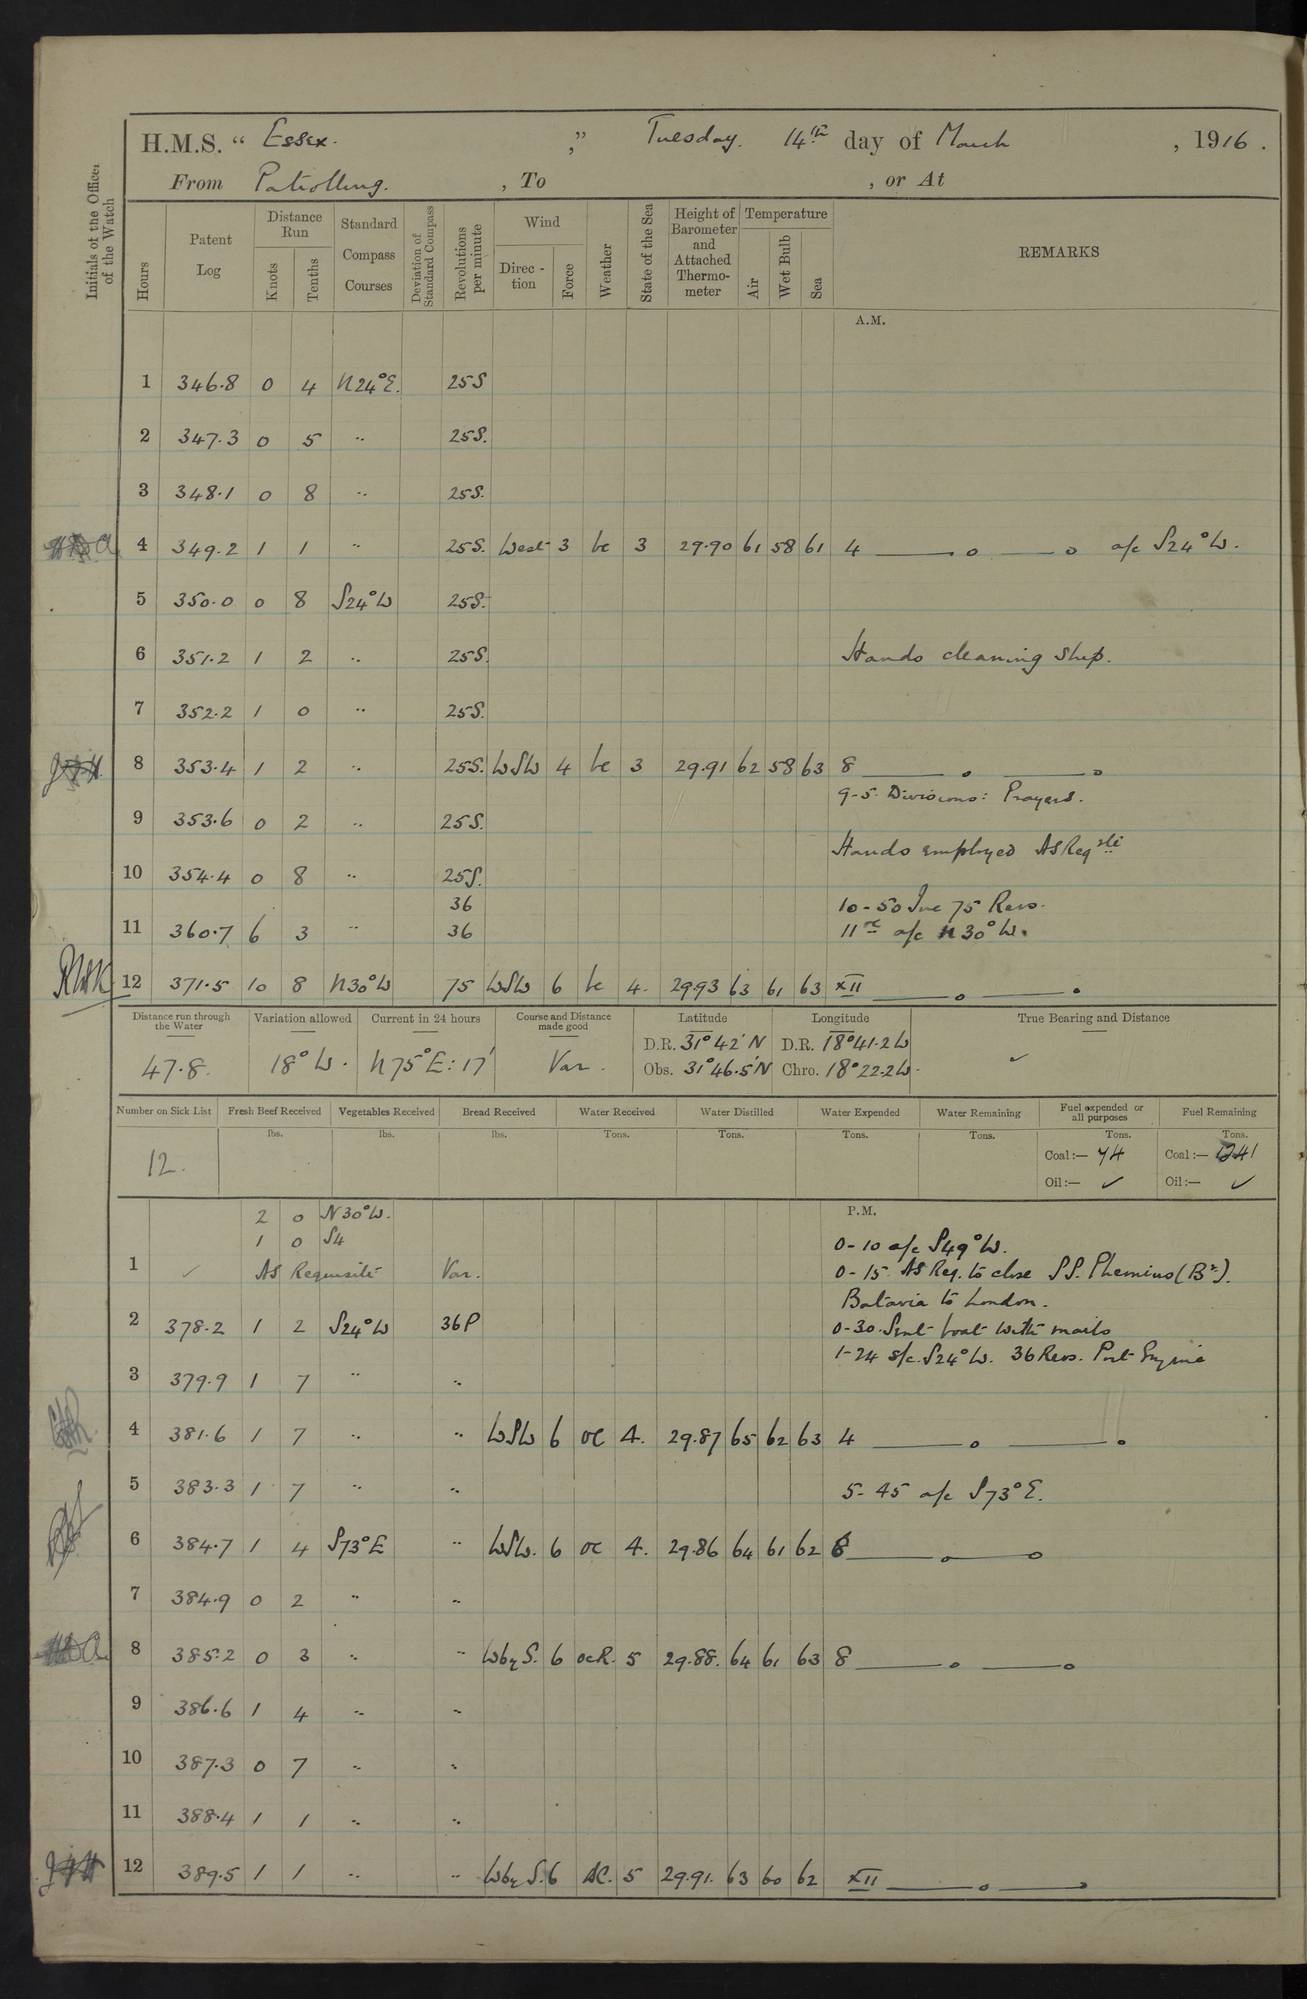 H.M.S. “ Essex. ,” Tuesday. 14th day of March , 1916 .
From Patrolling. , To , or At
Initials of the Officer of the Watch
Hours Patent Log Distance Run Knots Tenths Standard Compass Courses Deviation of Standard Compass Revolutions per minute Wind Direc-tion Force Weather State of the Sea Height of Barometer and Attached Thermo-meter Temperature Air Wet Bulb Sea REMARKS
A.M.
1 346.8 0 4 N24°E. 25S
2 347.3 0 5 " 25S.
3 348.1 0 8 " 25S.
4 349.2 1 1 " 25S. West 3 bc 3 29.90 61 58 61 4 a/c S24°W.
5 350.0 0 8 S24°W 25S.
6 351.2 1 2 " 25S. Hands cleaning ship.
7 352.2 1 0 " 25S.
8 353.4 1 2 " 25S. WSW 4 bc 3 29.91 62 58 63 8
9-5. Divisions: Prayers.
9 353.6 0 2 " 25S.
Hands employed As Reqste
10 354.4 0 8 " 25S.
36 10-50 Inc 75 Revs.
11 360.7 6 3 " 36 11 a/c N30°W.
12 371.5 10 8 N30°W 75 WSW 6 bc 4. 29.93 63 61 63 XII
Distance run through the Water Variation allowed Current in 24 hours Course and Distance made good Latitude Longitude True Bearing and Distance
47.8. 18°W. N75°E: 17' Var. D.R. 31°42'N D.R. 18°41.2W ✓
Obs. 31°46.5'N Chro. 18°22.2W.
Number on Sick List Fresh Beef Received Vegetables Received Bread Received Water Received Water Distilled Water Expended Water Remaining Fuel expended or all purposes Fuel Remaining
lbs. lbs. lbs. Tons. Tons. Tons. Tons. Tons. Tons.
12. Coal:— 74 Coal:— 1241
Oil:— ✓ Oil:— ✓
2 0 N30°W. P.M.
1 0 S4 0-10 a/c S49°W.
1 ✓ As Requisite Var. 0-15. As Req. to close S.S. Phemius (Br).
Batavia to London.
2 378.2 1 2 S24°W 36P 0-30. Sent boat with mails
1-24 s/c. S24°W. 36 Revs. Port Engine
3 379.9 1 7 " "
4 381.6 1 7 " " WSW 6 oc 4. 29.87 65 62 63 4
5 383.3 1 7 " " 5-45 a/c S73°E.
6 384.7 1 4 S73°E " WSW. 6 oc 4. 29.86 64 61 62 6
7 384.9 0 2 " "
8 385.2 0 3 " " WbyS. 6 ocR. 5 29.88. 64 61 63 8
9 386.6 1 4 " "
10 387.3 0 7 " "
11 388.4 1 1 " "
12 389.5 1 1 " " WbyS. 6 5 29.91. 63 60 62 XII